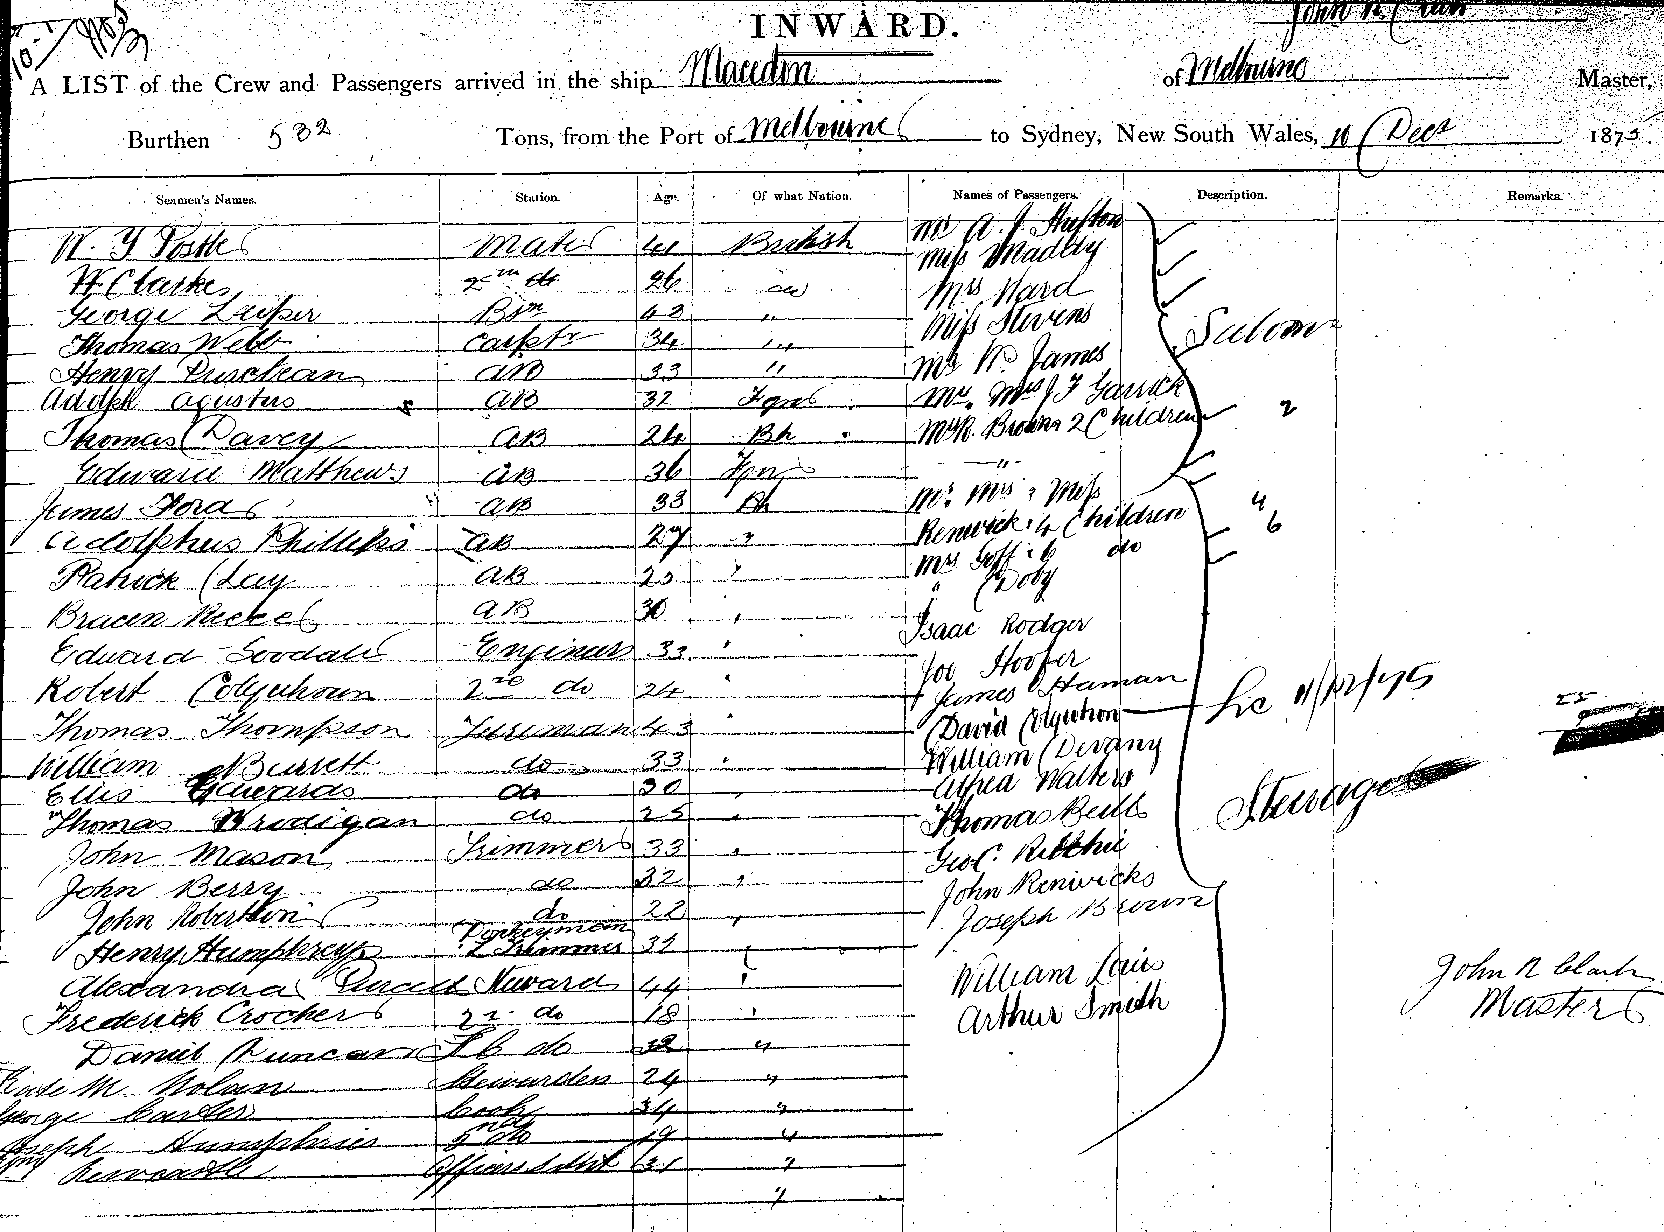 INWARD.
A LIST of the Crew and Passengers arrived in the ship Macedon of Melbourne Master,
Burthen 532 Tons, from the Port of Melbourne to Sydney, New South Wales, 10 Dect 1875
Seamen's Names. Station. Age. Of what Nation. Names of Passengers. Description. Remarks.
Mate 41 British
W Clarke 2nd do 26 do
George 43 "
Thomas Webb Carptr 34 "
Henry AB 33 "
Adolph Agustus AB 32 Fgn
Thomas Davey AB 24 Bh
Edward Matthews AB 36 Fgn
James Ford AB 33 Bh
Adolphus Phillips AB 27 "
Patrick Clay AB 23 "
AB 30 "
Edward Goodall Engineer 33 "
Robert Colquhoun 2nd do 24 "
Thomas Thompson Fireman 43 "
William Burrett do 33 "
Ellis Edwards do 30 "
Thomas Brodigan do 25 "
John Mason Trimmer 33 "
John Berry do 32 "
John Robertson do 22 "
Henry Humphreys Donkeyman & Trimmer 32 "
Alexandra Steward 44 "
Frederick Crocher 2nd do 18 "
Daniel Duncan do 32 "
M. Nolan Stewardess 24 "
George Carter Cook 34 "
Joseph Humphries 2nd do 19 "
Newcastle Officers Servt 31 "
"
Mr A. J.
Miss Madley
Mrs Ward
Miss Stevens
Mr W. James
Mr. Mrs J F Garrick
Mr R. Brown 2 Children 2
"
Mr. Mrs & Miss
Renwick & 4 Children 4
Mrs Goff & 6 do 6
" Doby
Isaac Rodger
Joe Hoofer
James Haman
David Colquhon
William Devany
Alfred Walters
Thomas Bell
Geo C. Ritchie
John Renwicks
Joseph Brown
William
Arthur Smith
Saloon
11/12/75
Steerage
John R Clark
Master